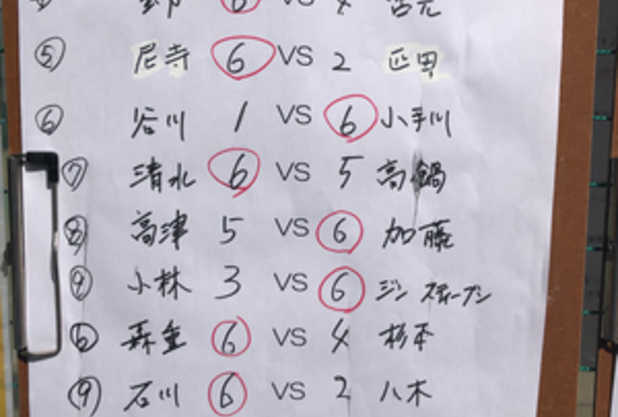 6 VS 4 宮元
⑤ 尼寺 6 VS 2 疋田
⑥ 谷川 1 VS 6 小手川
⑦ 清水 6 VS 5 高鍋
⑧ 高津 5 VS 6 加藤
⑨ 小林 3 VS 6 ジン スティーブン
⑤ 森重 6 VS 4 杉本
⑨ 石川 6 VS 2 八木